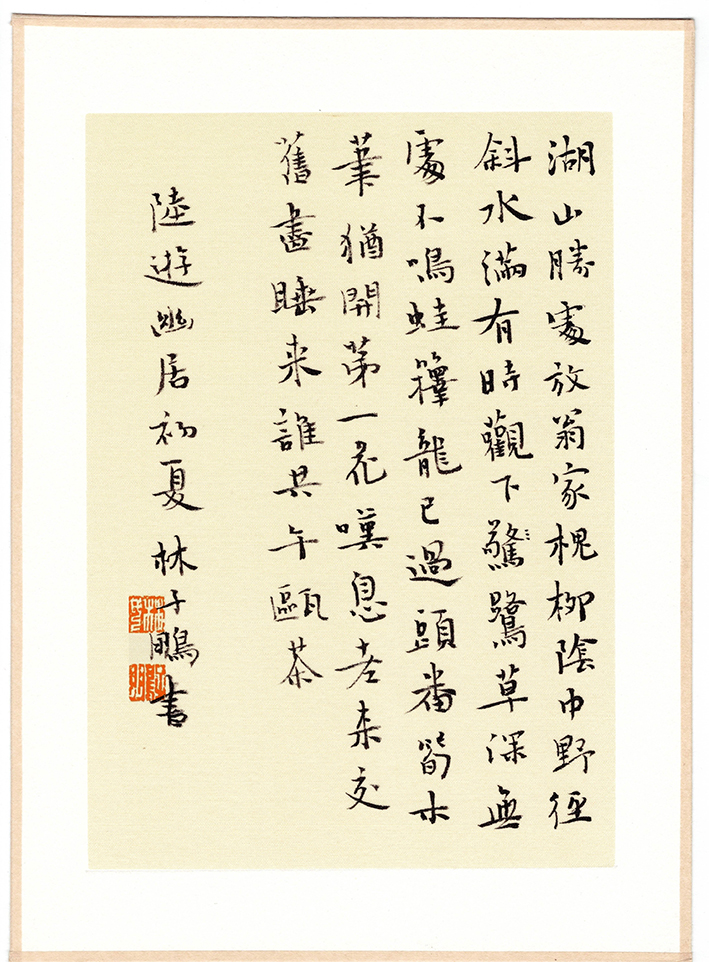 湖山勝處放翁家槐柳陰中野徑
斜水滿有時觀下驚鷺草深無
處不鳴蛙籜龍已過頭番筍木
筆猶開第一花嘆息老來交
舊盡睡來誰共午甌茶
陸遊幽居初夏林子鵬書